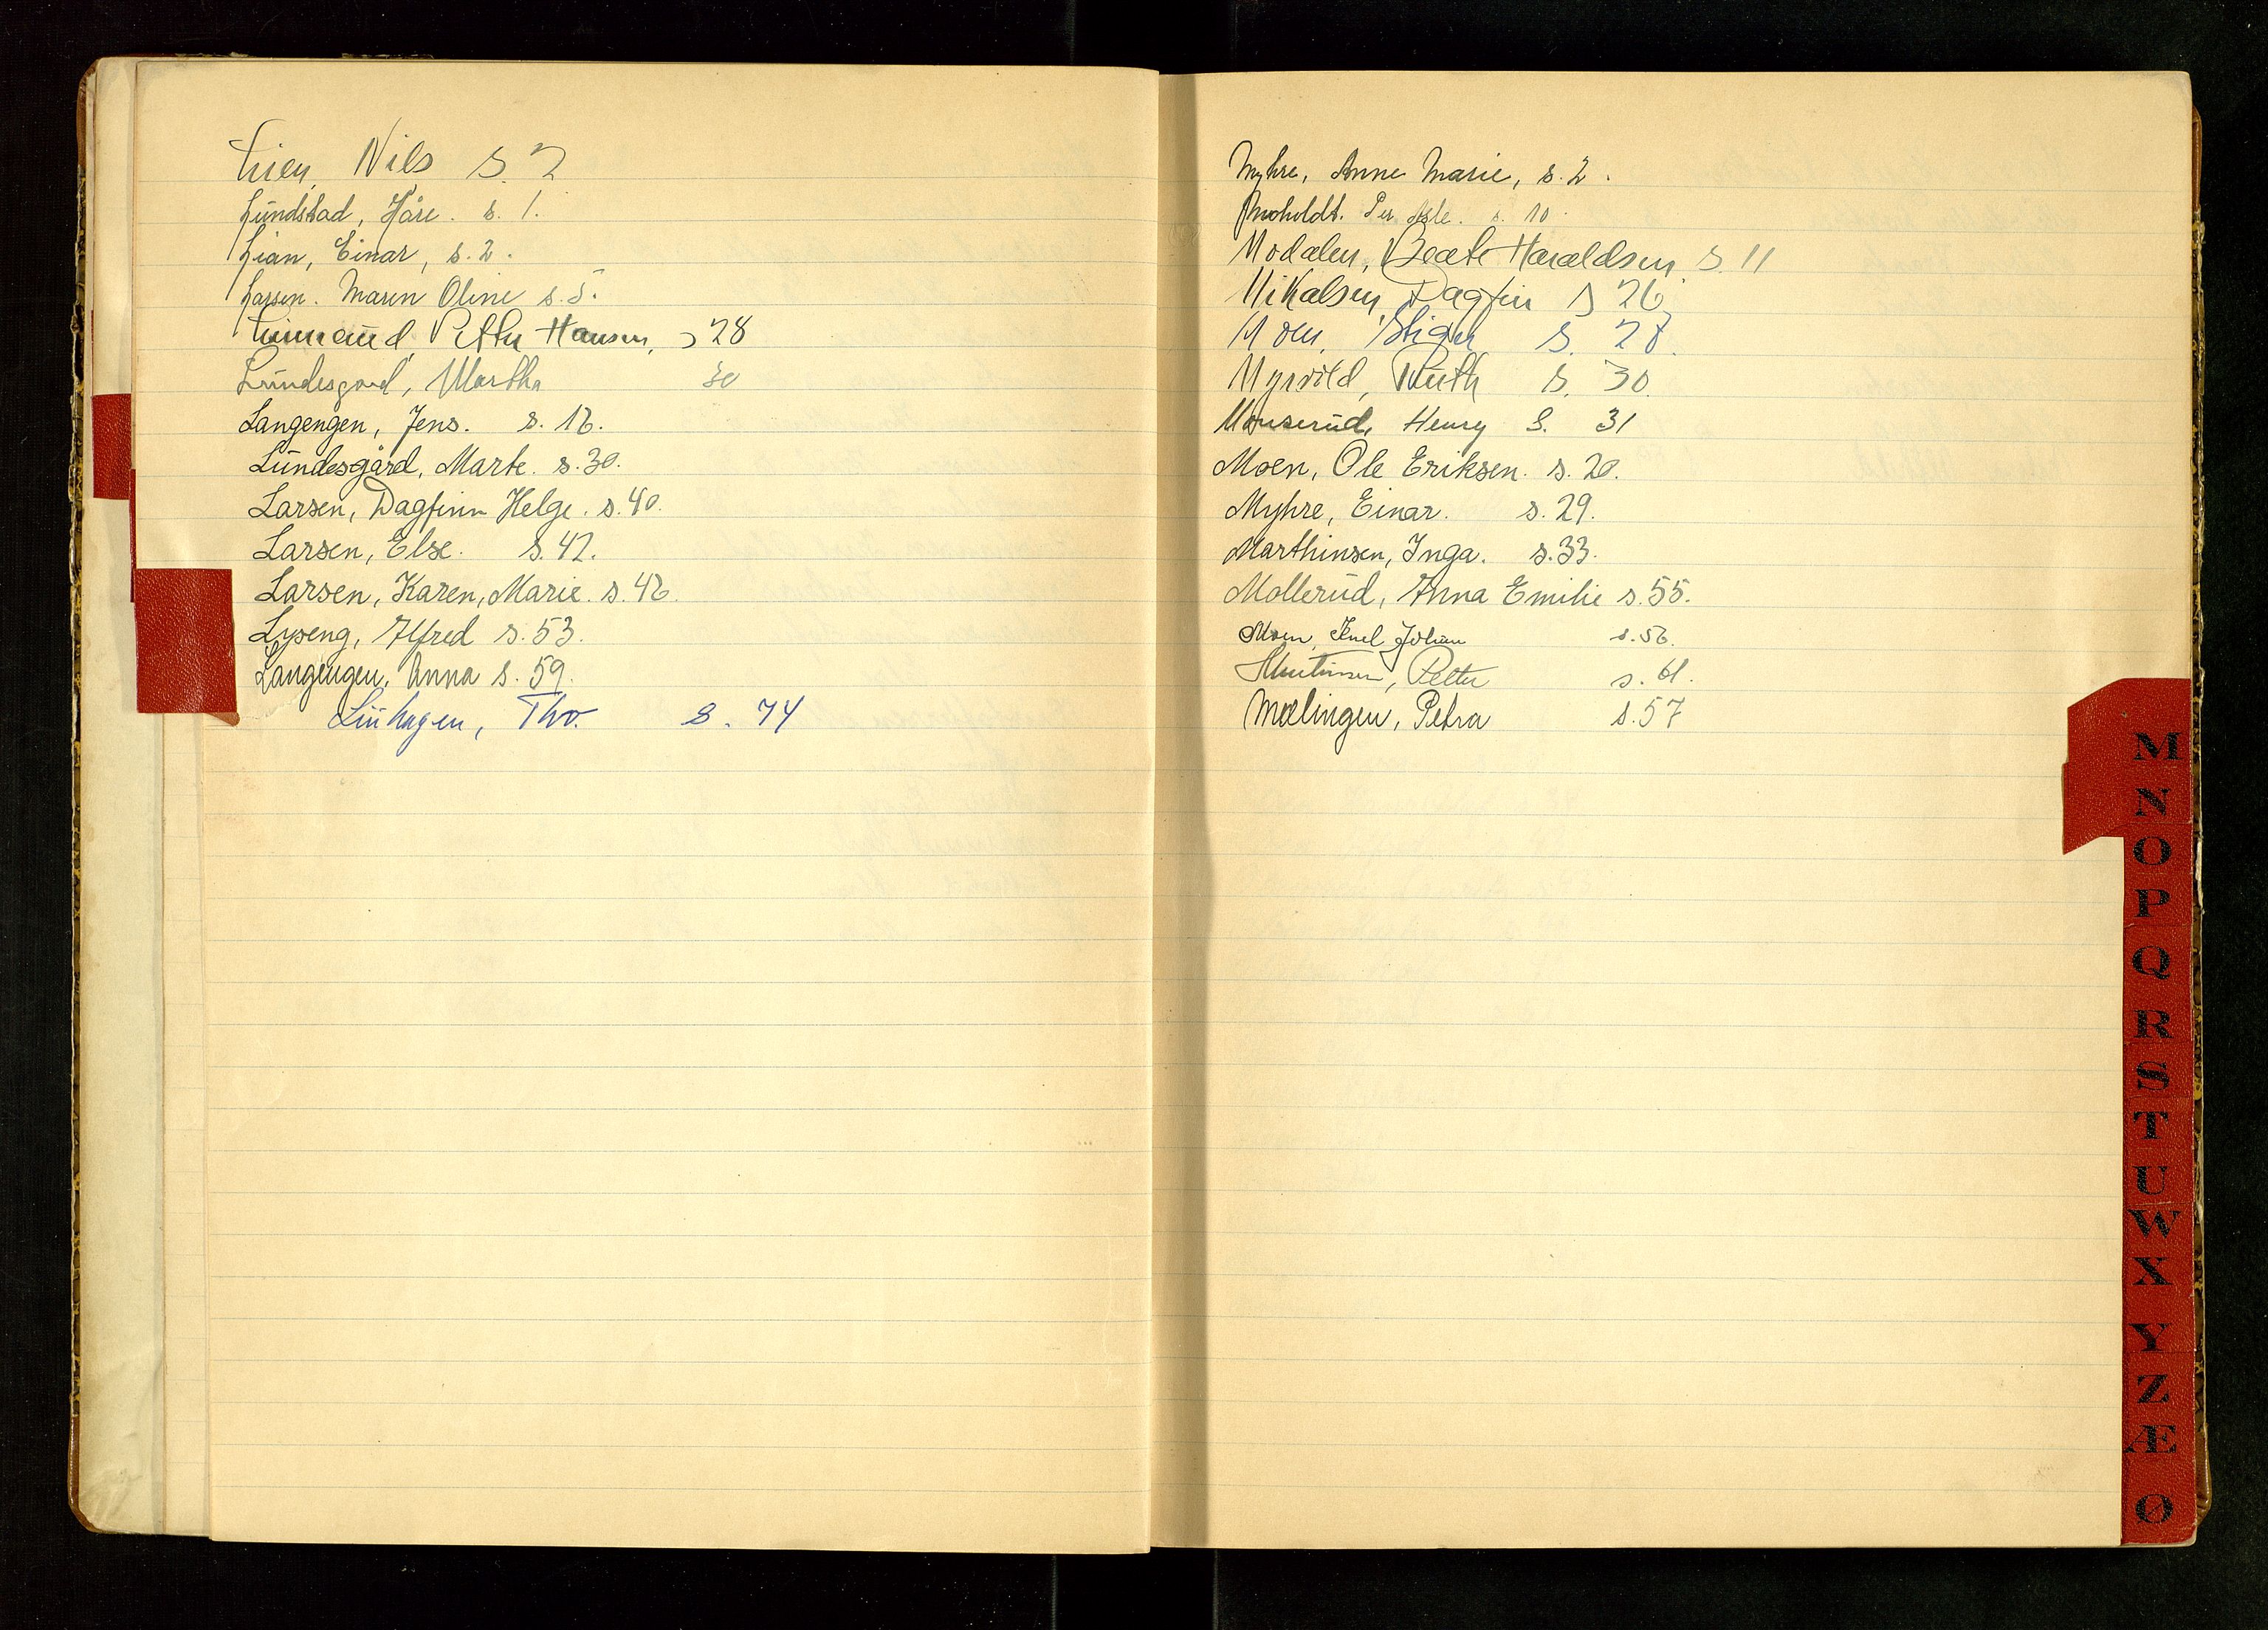 Lien, Nils s. 2
Lundstad, Kåre. s. 1.
Lian, Einar, s. 2.
Larsen. Maren Oline s. 5.
Petter Hansen, s 28
Lundesgård, Martha 30
Langengen, Jens. s. 16.
Lundesgård, Marte. s. 30.
Larsen, Dagfinn Helge. s. 40.
Larsen, Else. s. 42.
Larsen, Karen, Marie. s. 46.
Lyseng, Alfred s. 53.
Langengen, Anna s. 59.
Linhagen, Tho. s. 74
Myhre, Anne Marie, s. 2.
Moholdt. Per Asle. s. 10.
Modalen, Beate Haraldsen s. 11
Mikalsen, Dagfin s 26
Moen, Stiger s. 28.
Myrvold, Ruth s. 30.
Monserud, Henry S. 31
Moen, Ole Eriksen. s. 20.
Myhre, Einar. s. 29.
Marthinsen, Inga. s. 33.
Mollerud, Anna Emilie s. 55.
Moen, Johan s. 56.
Petter s. 61.
Mælingen, Petra s. 57
M
N
O
P
Q
R
S
T
U
W
X
Y
Z
Æ
Ø